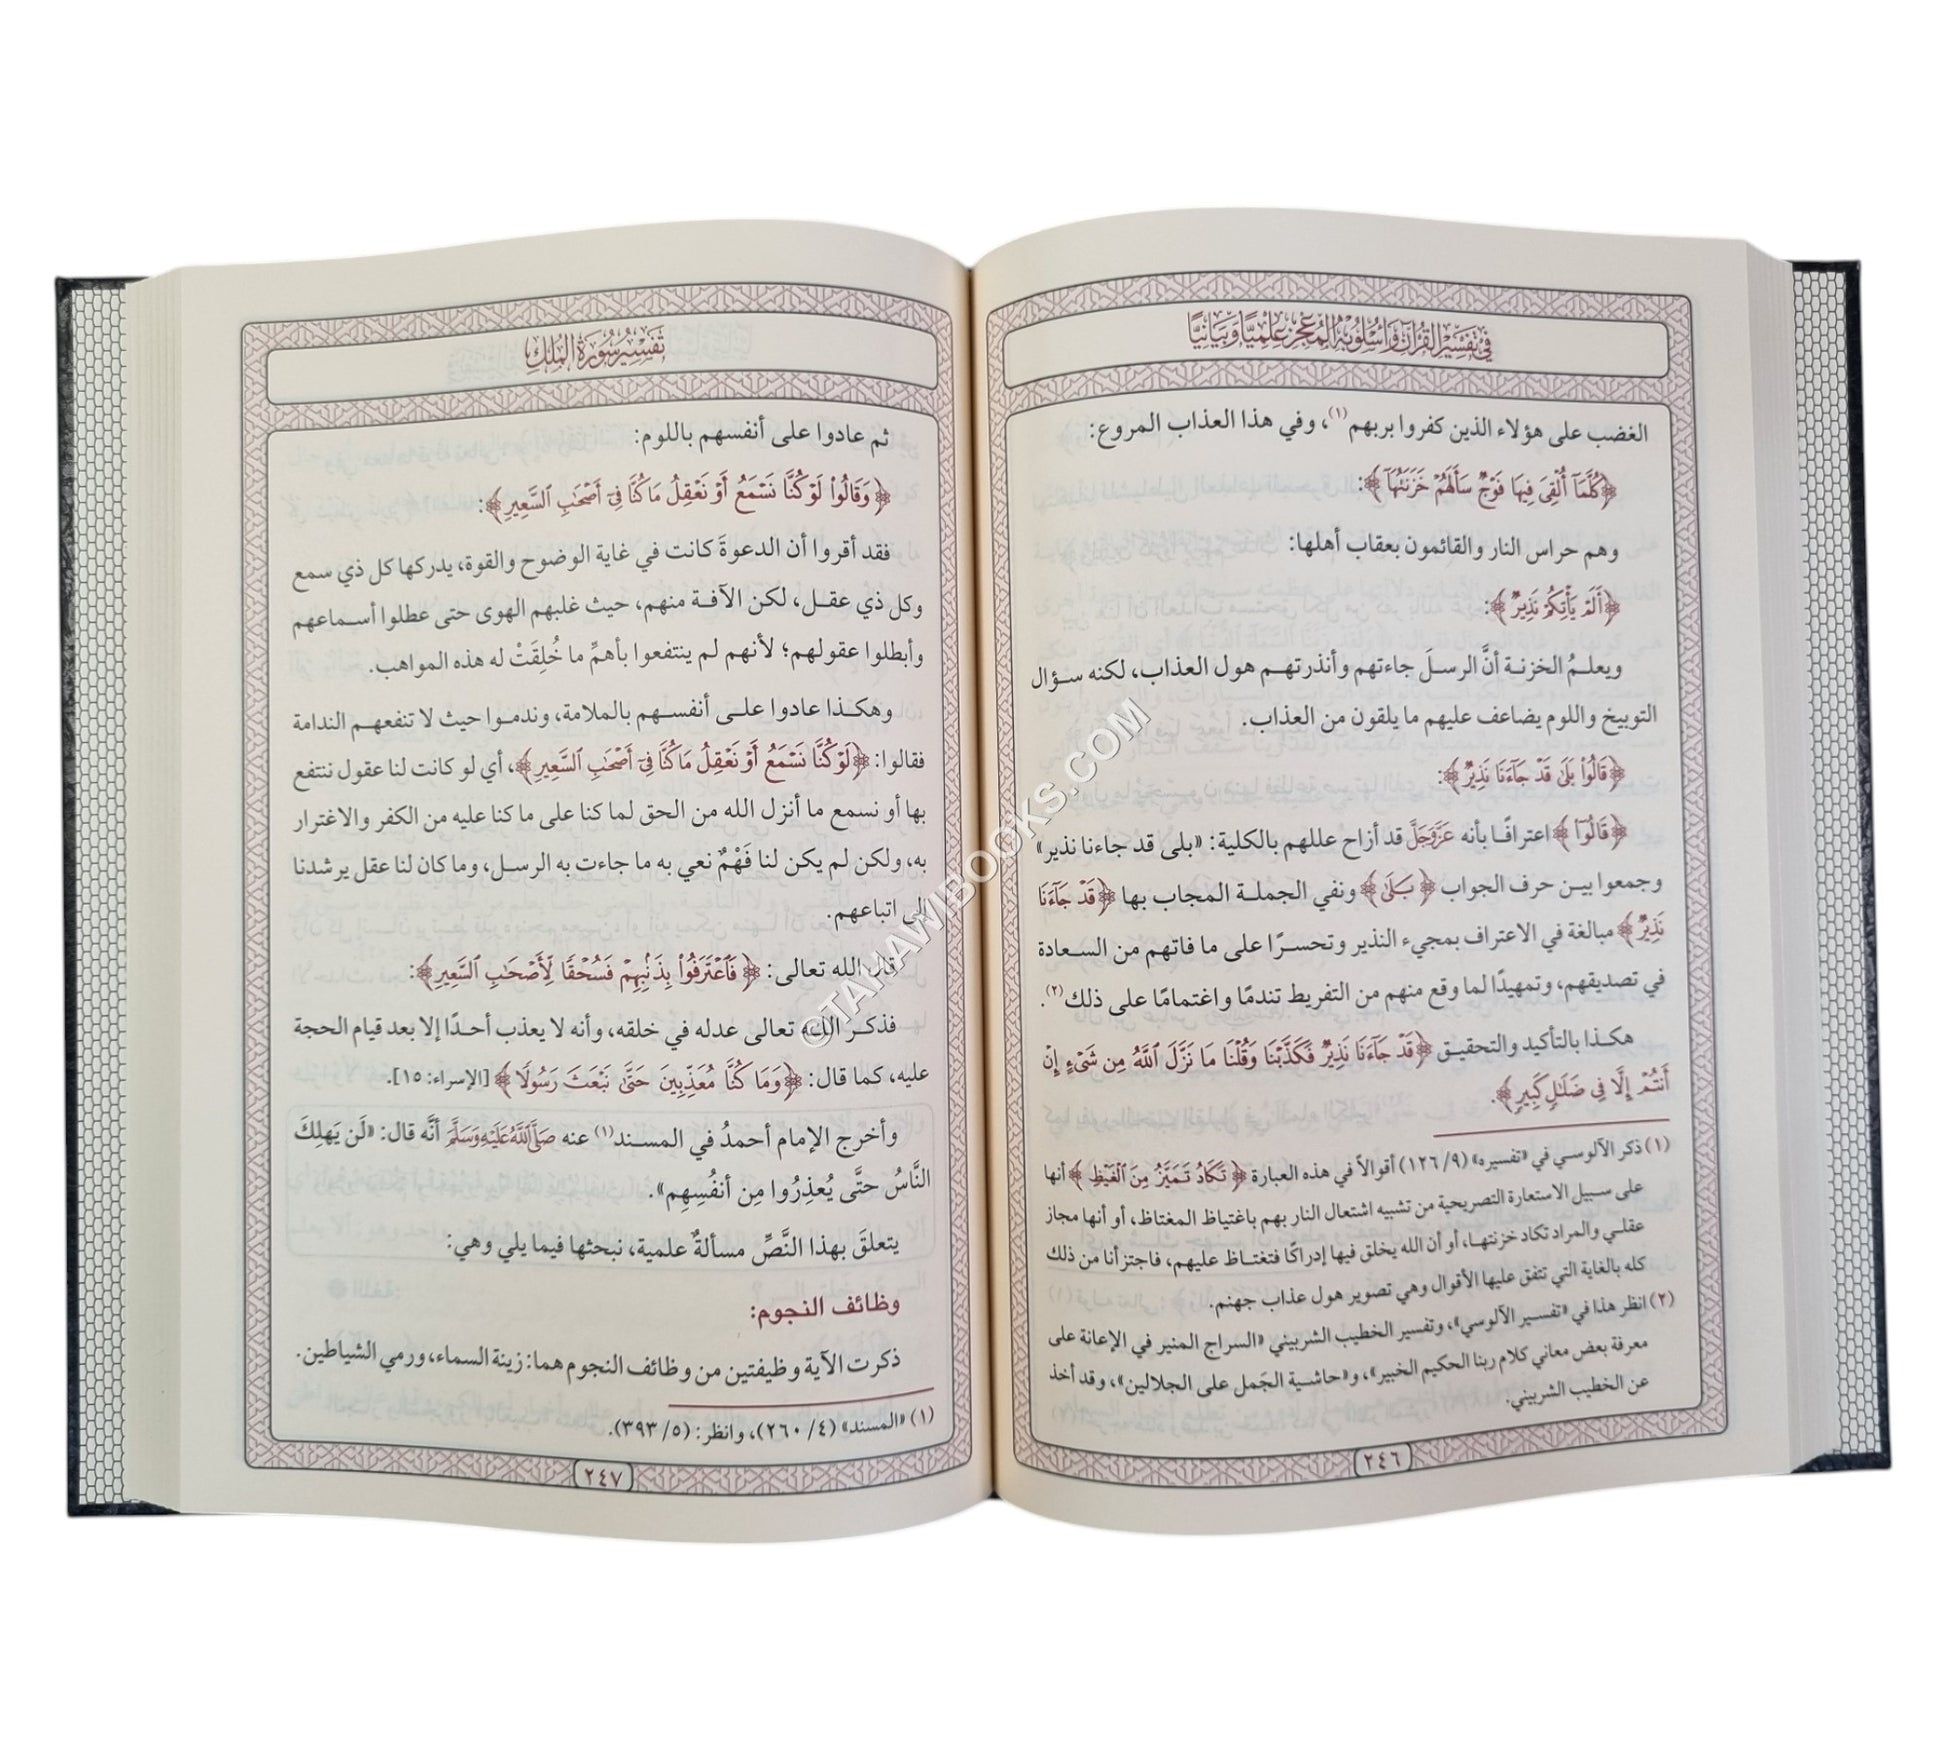 في تفسير القرآن وأسلوبه المعجز علميًا وبيانيًا
الغضب على هؤلاء الذين كفروا بربهم(١)، وفي هذا العذاب المروع:
﴿كُلَّمَآ أُلْقِىَ فِيهَا فَوْجٌ سَأَلَهُمْ خَزَنَتُهَآ﴾:
وهم حراس النار والقائمون بعقاب أهلها:
﴿أَلَمْ يَأْتِكُمْ نَذِيرٌ﴾:
ويعلمُ الخزنة أنَّ الرسلَ جاءتهم وأنذرتهم هول العذاب، لكنه سؤال
التوبيخ واللوم يضاعف عليهم ما يلقون من العذاب.
﴿قَالُوا۟ بَلَىٰ قَدْ جَآءَنَا نَذِيرٌ﴾:
﴿قَالُوا۟﴾ اعترافًا بأنه عَزَّوَجَلَّ قد أزاح عللهم بالكلية: «بلى قد جاءنا نذير»
وجمعوا بين حرف الجواب ﴿بَلَىٰ﴾ ونفي الجملة المجاب بها ﴿قَدْ جَآءَنَا
نَذِيرٌ﴾ مبالغة في الاعتراف بمجيء النذير وتحسرًا على ما فاتهم من السعادة
في تصديقهم، وتمهيدًا لما وقع منهم من التفريط تندمًا واغتمامًا على ذلك(٢).
هكذا بالتأكيد والتحقيق ﴿قَدْ جَآءَنَا نَذِيرٌ فَكَذَّبْنَا وَقُلْنَا مَا نَزَّلَ ٱللَّهُ مِن شَىْءٍ إِنْ
أَنتُمْ إِلَّا فِى ضَلَٰلٍ كَبِيرٍ﴾.
(١) ذكر الآلوسي في «تفسيره» (٩/ ١٢٦) أقوالاً في هذه العبارة ﴿تَكَادُ تَمَيَّزُ مِنَ ٱلْغَيْظِ﴾ أنها
على سبيل الاستعارة التصريحية من تشبيه اشتعال النار بهم باغتياظ المغتاظ، أو أنها مجاز
عقلي والمراد تكاد خزنتها، أو أن الله يخلق فيها إدراكًا فتغتاظ عليهم، فاجتزأنا من ذلك
كله بالغاية التي تتفق عليها الأقوال وهي تصوير هول عذاب جهنم.
(٢) انظر هذا في «تفسير الآلوسي»، وتفسير الخطيب الشربيني «السراج المنير في الإعانة على
معرفة بعض معاني كلام ربنا الحكيم الخبير»، و«حاشية الجَمل على الجلالين»، وقد أخذ
عن الخطيب الشربيني.
٢٤٦
تفسير سورة الملك
ثم عادوا على أنفسهم باللوم:
﴿وَقَالُوا۟ لَوْ كُنَّا نَسْمَعُ أَوْ نَعْقِلُ مَا كُنَّا فِىٓ أَصْحَٰبِ ٱلسَّعِيرِ﴾:
فقد أقروا أن الدعوةَ كانت في غاية الوضوح والقوة، يدركها كل ذي سمع
وكل ذي عقل، لكن الآفة منهم، حيث غلبهم الهوى حتى عطلوا أسماعهم
وأبطلوا عقولهم؛ لأنهم لم ينتفعوا بأهمِّ ما خُلِقَتْ له هذه المواهب.
وهكذا عادوا على أنفسهم بالملامة، وندموا حيث لا تنفعهم الندامة
فقالوا: ﴿لَوْ كُنَّا نَسْمَعُ أَوْ نَعْقِلُ مَا كُنَّا فِىٓ أَصْحَٰبِ ٱلسَّعِيرِ﴾، أي لو كانت لنا عقول ننتفع
بها أو نسمع ما أنزل الله من الحق لما كنا على ما كنا عليه من الكفر والاغترار
به، ولكن لم يكن لنا فَهْمٌ نعي به ما جاءت به الرسل، وما كان لنا عقل يرشدنا
إلى اتباعهم.
قال الله تعالى: ﴿فَٱعْتَرَفُوا۟ بِذَنۢبِهِمْ فَسُحْقًا لِّأَصْحَٰبِ ٱلسَّعِيرِ﴾:
فذكر الله تعالى عدله في خلقه، وأنه لا يعذب أحدًا إلا بعد قيام الحجة
عليه، كما قال: ﴿وَمَا كُنَّا مُعَذِّبِينَ حَتَّىٰ نَبْعَثَ رَسُولًا﴾ [الإسراء: ١٥].
وأخرج الإمام أحمدُ في المسند(١) عنه صَلَّى ٱللَّهُ عَلَيْهِ وَسَلَّمَ أنَّه قال: «لَن يَهلِكَ
النَّاسُ حتَّى يُعذِرُوا مِن أنفُسِهِم».
يتعلقَ بهذا النَّصِّ مسألةٌ علمية، نبحثها فيما يلي وهي:
وظائف النجوم:
ذكرت الآية وظيفتين من وظائف النجوم هما: زينة السماء، ورمي الشياطين.
(١) «المسند» (٤/ ٢٦٠)، وانظر: (٥/ ٣٩٣).
٢٤٧
©TAHAWIBOOKS.COM